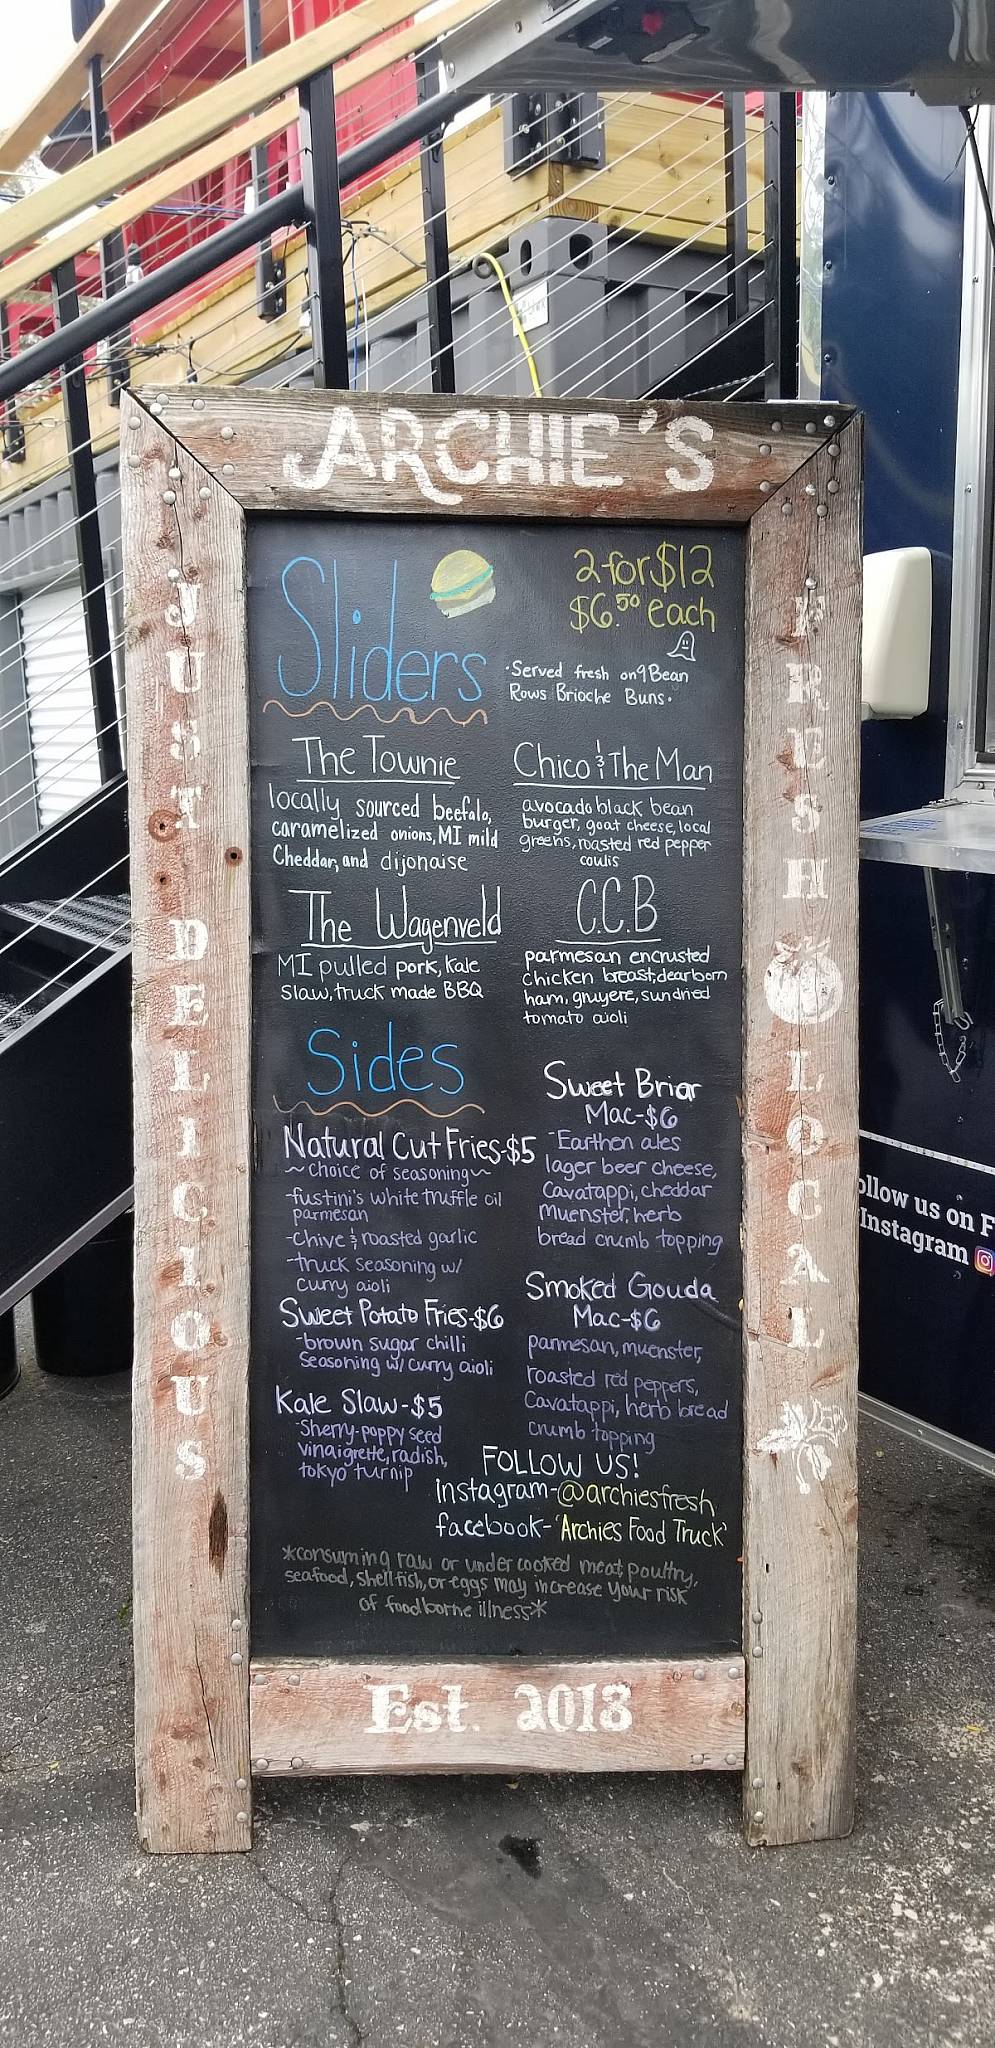 ARCHIE'S
JUST DELICIOUS
FRESH LOCAL
Sliders
2 for $12
$6.50 each
·Served fresh on 9 Bean
Rows Brioche Buns·
The Townie
locally sourced beefalo,
caramelized onions, MI mild
Cheddar, and dijonaise
Chico & The Man
avocado black bean
burger, goat cheese, local
greens, roasted red pepper
coulis
The Wagenveld
MI pulled pork, kale
slaw, truck made BBQ
C.C.B
parmesan encrusted
chicken breast, dearborn
ham, gruyere, sundried
tomato aioli
Sides
Natural Cut Fries-$5
~choice of seasoning~
-fustini's white truffle oil
parmesan
-Chive & roasted garlic
-truck seasoning w/
curry aioli
Sweet Potato Fries-$6
-brown sugar chilli
seasoning w/ curry aioli
Kale Slaw-$5
-Sherry-poppy seed
vinaigrette, radish,
tokyo turnip
Sweet Briar
Mac-$6
-Earthen ales
lager beer cheese,
Cavatappi, cheddar
muenster, herb
bread crumb topping
Smoked Gouda
Mac-$6
parmesan, muenster,
roasted red peppers,
Cavatappi, herb bread
crumb topping
FOLLOW US!
instagram-@archiesfresh
facebook-'Archies Food Truck'
*consuming raw or under cooked meat, poultry,
seafood, shellfish, or eggs may increase your risk
of foodborne illness*
Est. 2013
ollow us on F
Instagram